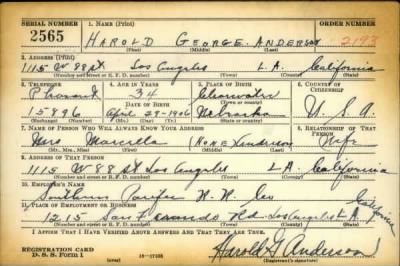 SERIAL NUMBER 1. NAME (Print)
2565 HAROLD GEORGE ANDERSON 2193
(First) (Middle) (Last)
2. ADDRESS (Print)
1115 W 88 St. Los Angeles L.A. California
(Number and street or R. F. D. number) (Town) (County) (State)
3. TELEPHONE 4. AGE IN YEARS 5. PLACE OF BIRTH 6. COUNTRY OF CITIZENSHIP
34 Clearwater
DATE OF BIRTH (Town or county)
April 29-1906 Nebraska U.S.A.
(Exchange) (Number) (Mo.) (Day) (Yr.) (State or country)
7. NAME OF PERSON WHO WILL ALWAYS KNOW YOUR ADDRESS 8. RELATIONSHIP OF THAT PERSON
Mrs Marcella Anderson Wife
(Mr., Mrs., Miss) (First) (Middle) (Last)
9. ADDRESS OF THAT PERSON
1115 W 88 St Los Angeles L.A. California
(Number and street or R. F. D. number) (Town) (County) (State)
10. EMPLOYER'S NAME
Southern Pacific R.R. Co
11. PLACE OF EMPLOYMENT OR BUSINESS
1215 San Fernando Rd - Los Angeles L.A. California
(Number and street or R. F. D. number) (Town) (County) (State)
I AFFIRM THAT I HAVE VERIFIED ABOVE ANSWERS AND THAT THEY ARE TRUE.
REGISTRATION CARD
D. S. S. Form 1 Harold G Anderson
(Registrant's signature)